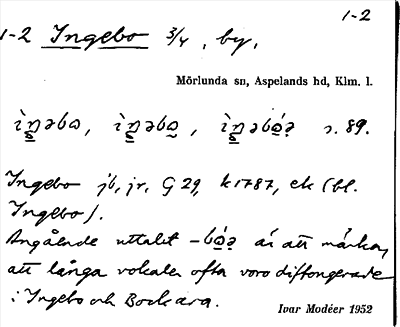 1-2
1-2 Ingebo 3/4, by.
Mörlunda sn, Aspelands hd, Klm. l.
ìŋəbɷ, ìŋəbɷ, ìŋəbɷ́ə s. 89.
Ingebo jb, jr, G 29, k 1787, ek (bl.
Ingebo).
Angående uttalet -bɷ́ə är att märka,
att långa vokaler ofta voro diftongerade
i Ingebo och Bockara.
Ivar Modéer 1952